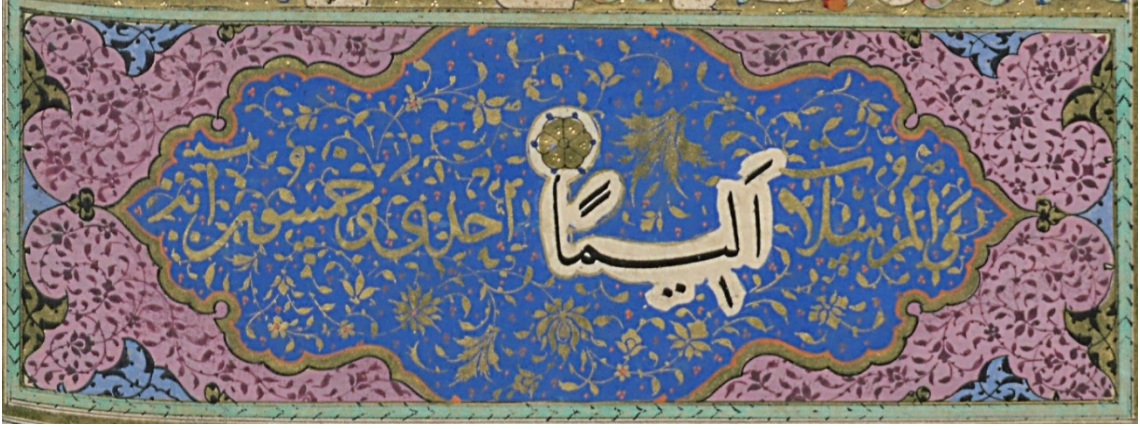 المرسلات أَلِيمًا احدى و خمسون اية